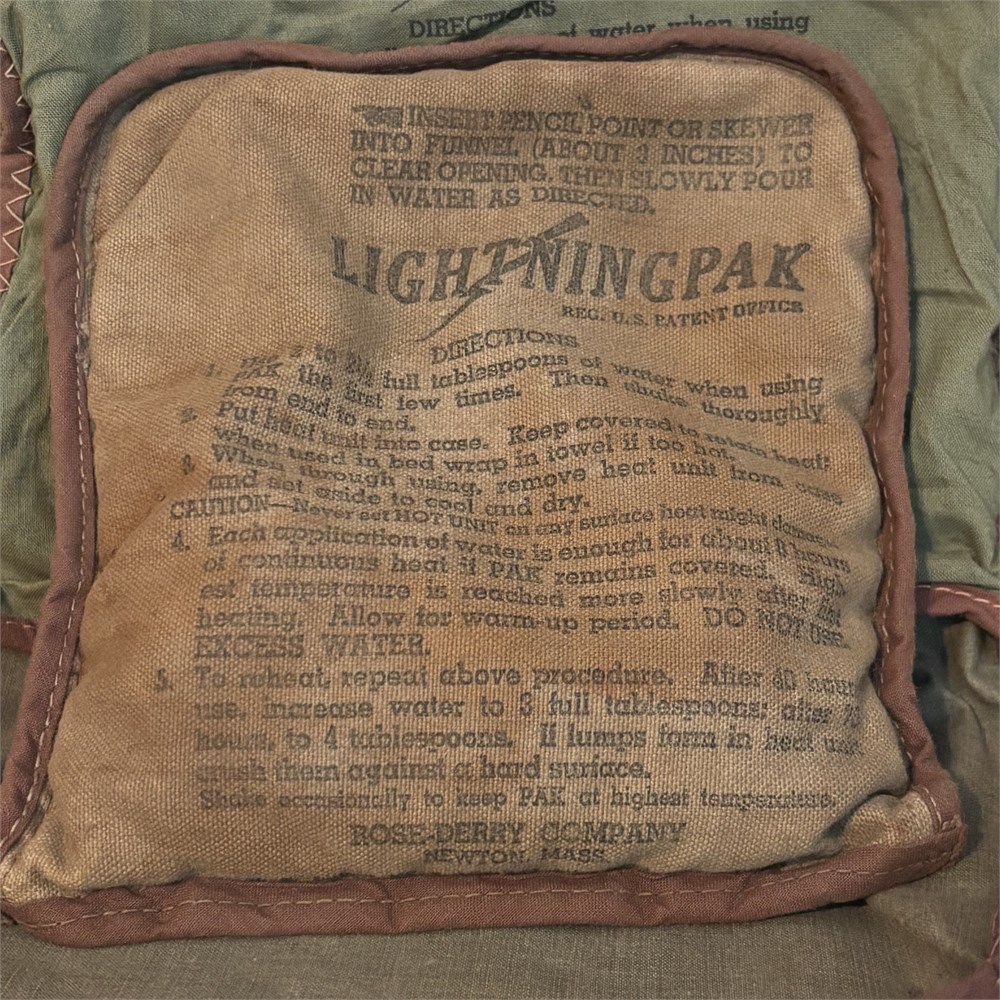 DIRECTIONS
of water when using
INSERT PENCIL POINT OR SKEWER
INTO FUNNEL (ABOUT 3 INCHES) TO
CLEAR OPENING, THEN SLOWLY POUR
IN WATER AS DIRECTED.
LIGHTNINGPAK
REG. U.S. PATENT OFFICE
DIRECTIONS
1. to full tablespoons of water when using
PAK the first few times. Then shake thoroughly
from end to end.
2. Put heat unit into case. Keep covered to retain heat;
when used in bed wrap in towel if too hot.
3. When through using, remove heat unit from case
and set aside to cool and dry.
CAUTION—Never set HOT UNIT on any surface heat might
4. Each application of water is enough for about 8 hours
of continuous heat if PAK remains covered. High-
est temperature is reached more slowly after first
heating. Allow for warm-up period. DO NOT USE
EXCESS WATER.
5. To reheat, repeat above procedure. After 40 hours
use, increase water to 3 full tablespoons; after
hours, to 4 tablespoons. If lumps form in heat unit
crush them against a hard surface.
Shake occasionally to keep PAK at highest temperature.
ROSE-DERRY COMPANY
NEWTON, MASS.